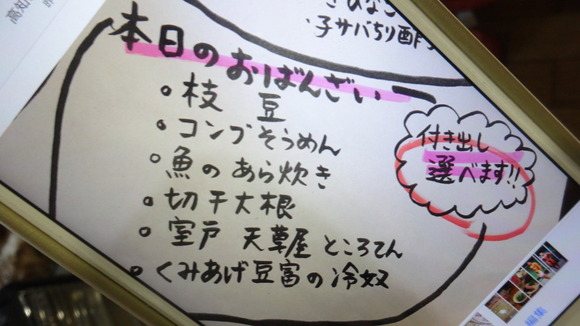 高知
きびなご
子サバちり酢
本日のおばんざい
枝豆
コンブそうめん
魚のあら炊き
切干大根
室戸 天草屋 ところてん
くみあげ豆富の冷奴
付き出し
選べます!!
編集